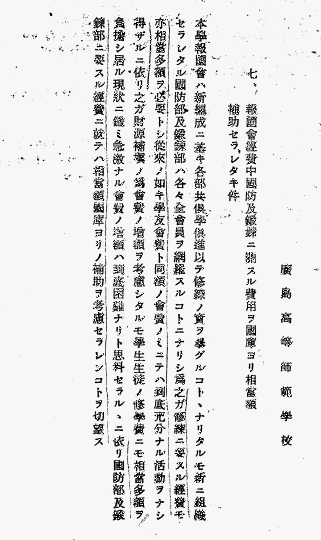 廣島高等師範學校
七、報國會經費中國防及鍛錬ニ要スル費用ヲ國庫ヨリ相當額
補助セラレタキ件
本學報國會ハ新編成ニ基キ各部共倶學倶進以テ修錬ノ實ヲ擧グルコトヽナリタルモ新ニ組織
セラレタル國防部及鍛錬部ハ各々全會員ヲ網羅スルコトニナリシ爲之ガ修錬ニ要スル經費モ
亦相當多額ヲ必要トシ從來ノ如キ學友會費ト同額ノ會費ノミニテハ到底充分ナル活動ヲナシ
得ザルニ依リ之ガ財源補塡ノ爲會費ノ增額ヲ考慮シタルモ學生生徒ノ修學費ニモ相當多額ヲ
負擔シ居ル現狀ニ鑑ミ急激ナル會費ノ增額ハ到底困難ナリト思料セラルヽニ依リ國防部及鍛
錬部ニ要スル經費ニ就テハ相當額國庫ヨリノ補助ヲ考慮セラレンコトヲ切望ス